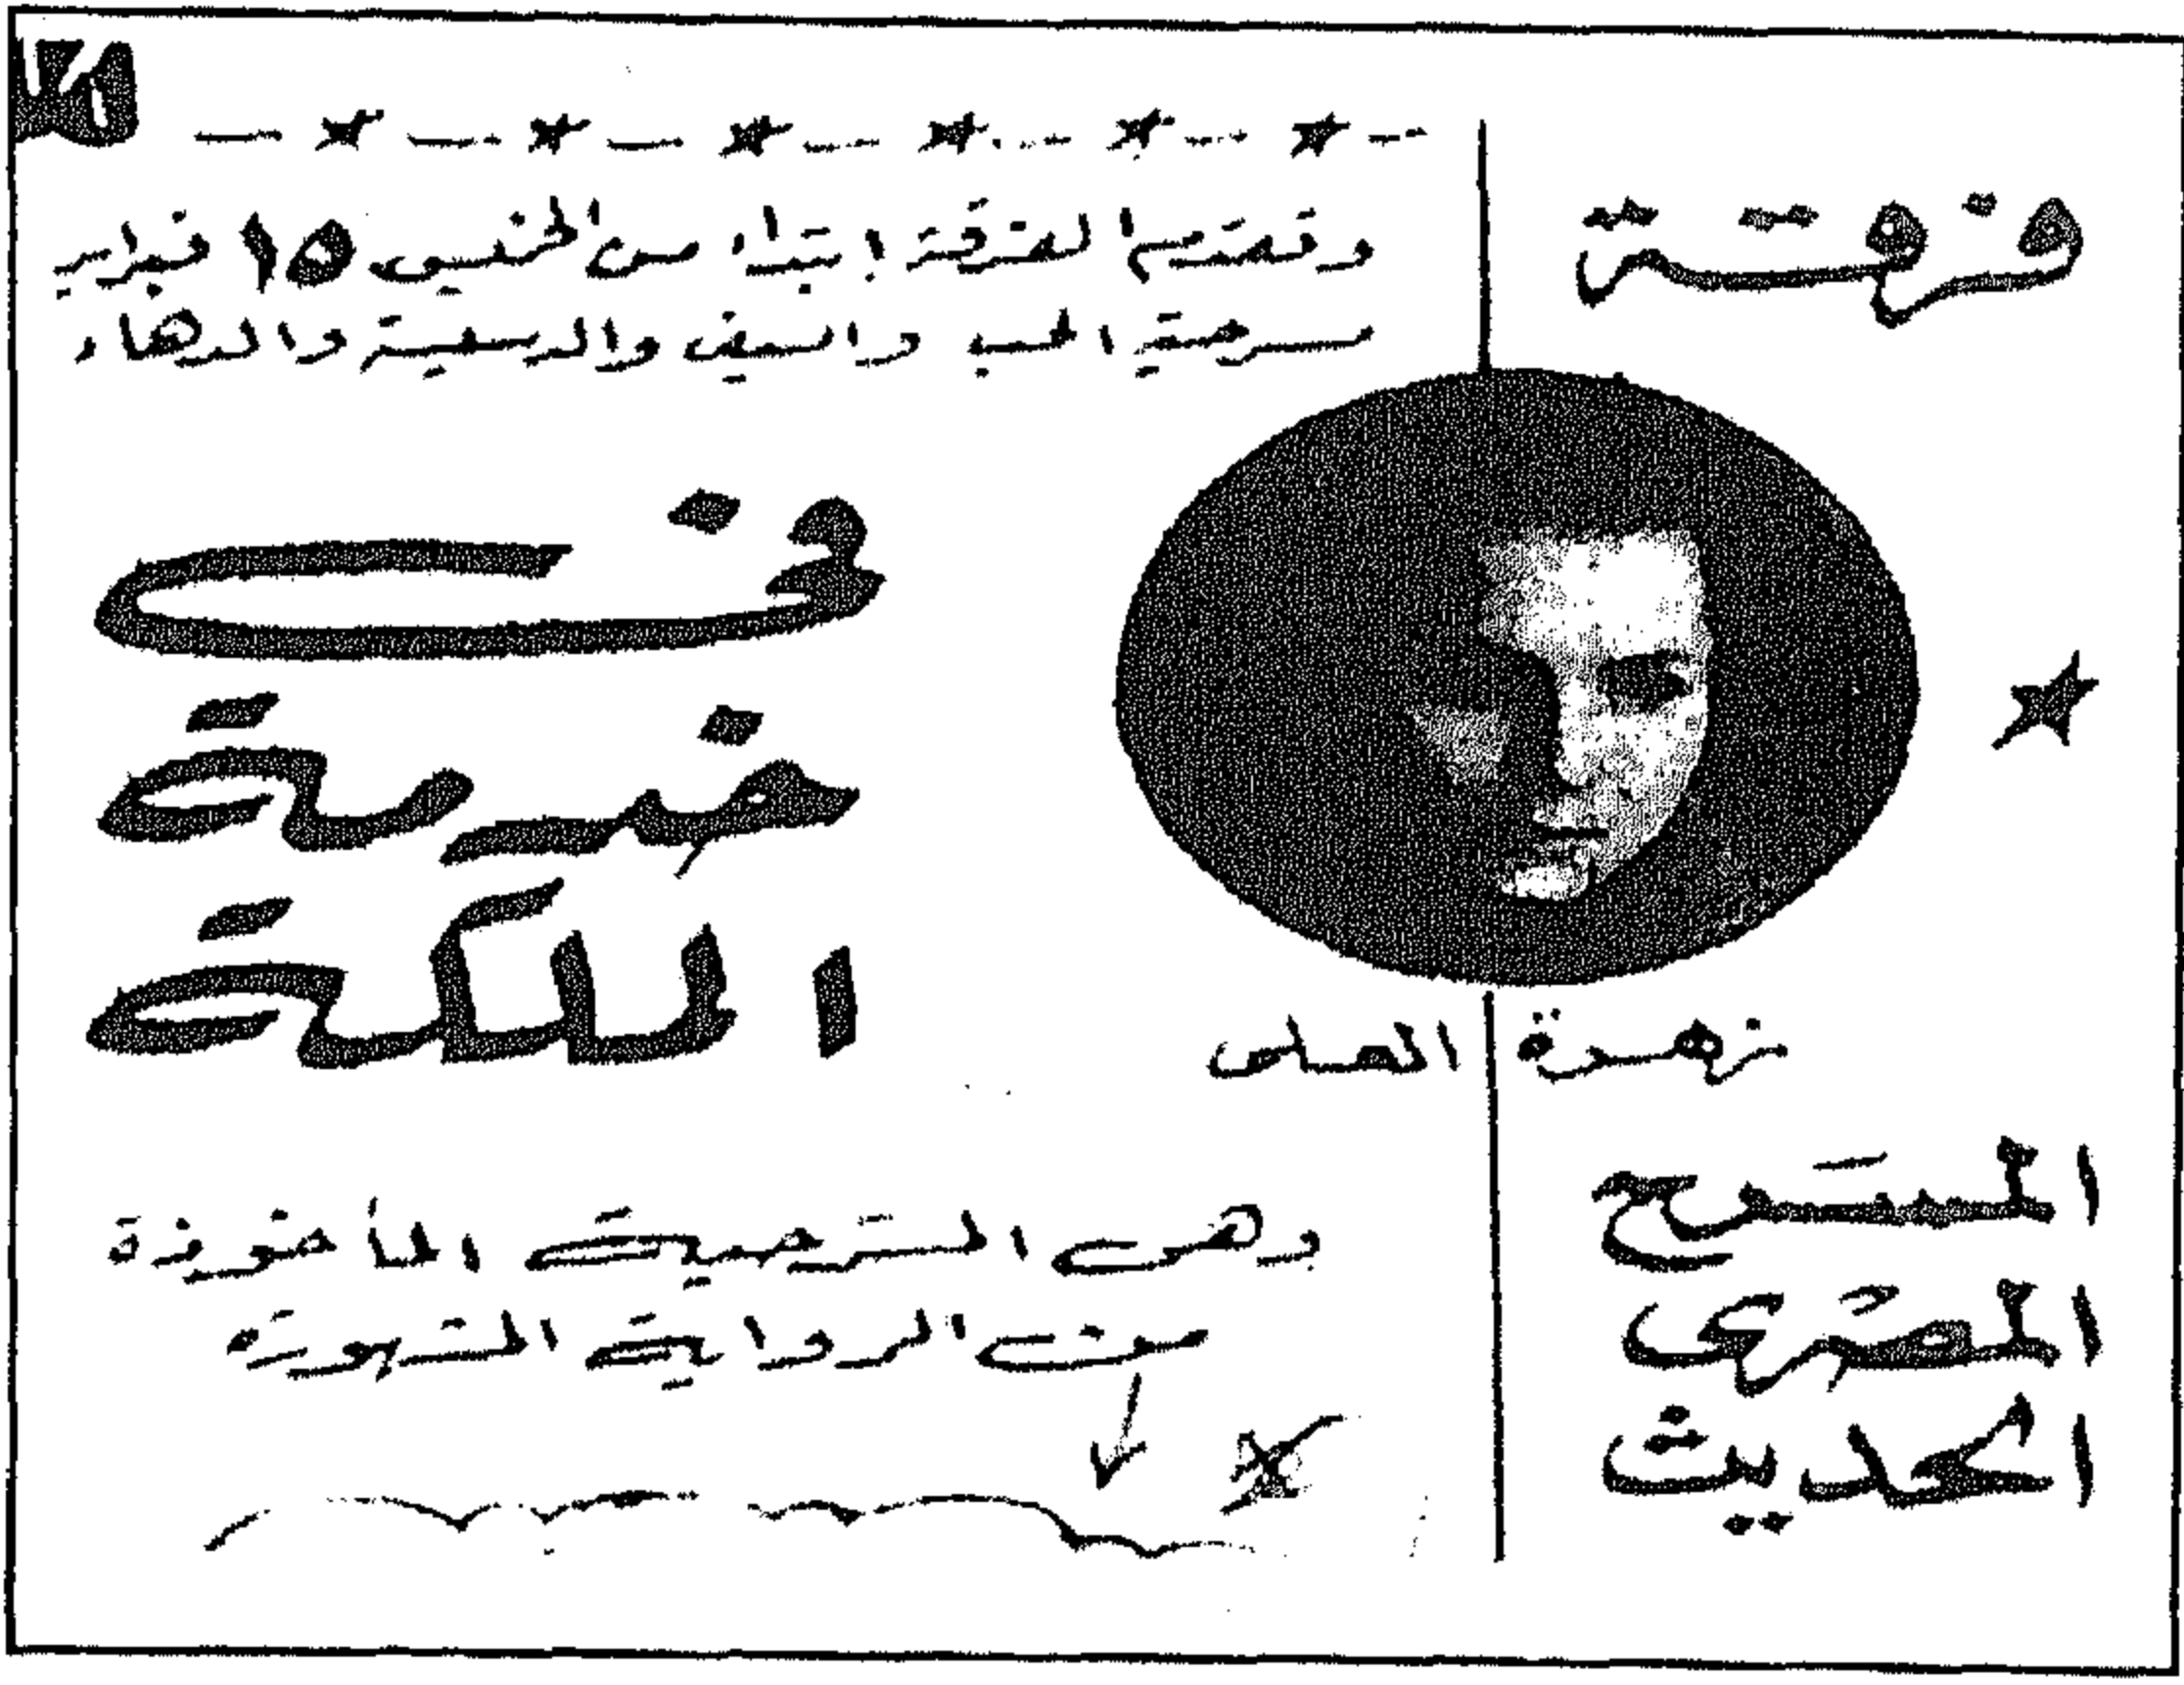 فرقة
المسرح
المصرى
الحديث
زهرة العلى
وتقدم الفرقة ابتداء من الخميس ١٥ فبراير
مسرحية الحب والسيف والدسيسة والدهاء
فى
خدمة
الملكة
وهى المسرحية المأخوذة
من الرواية الشهيرة